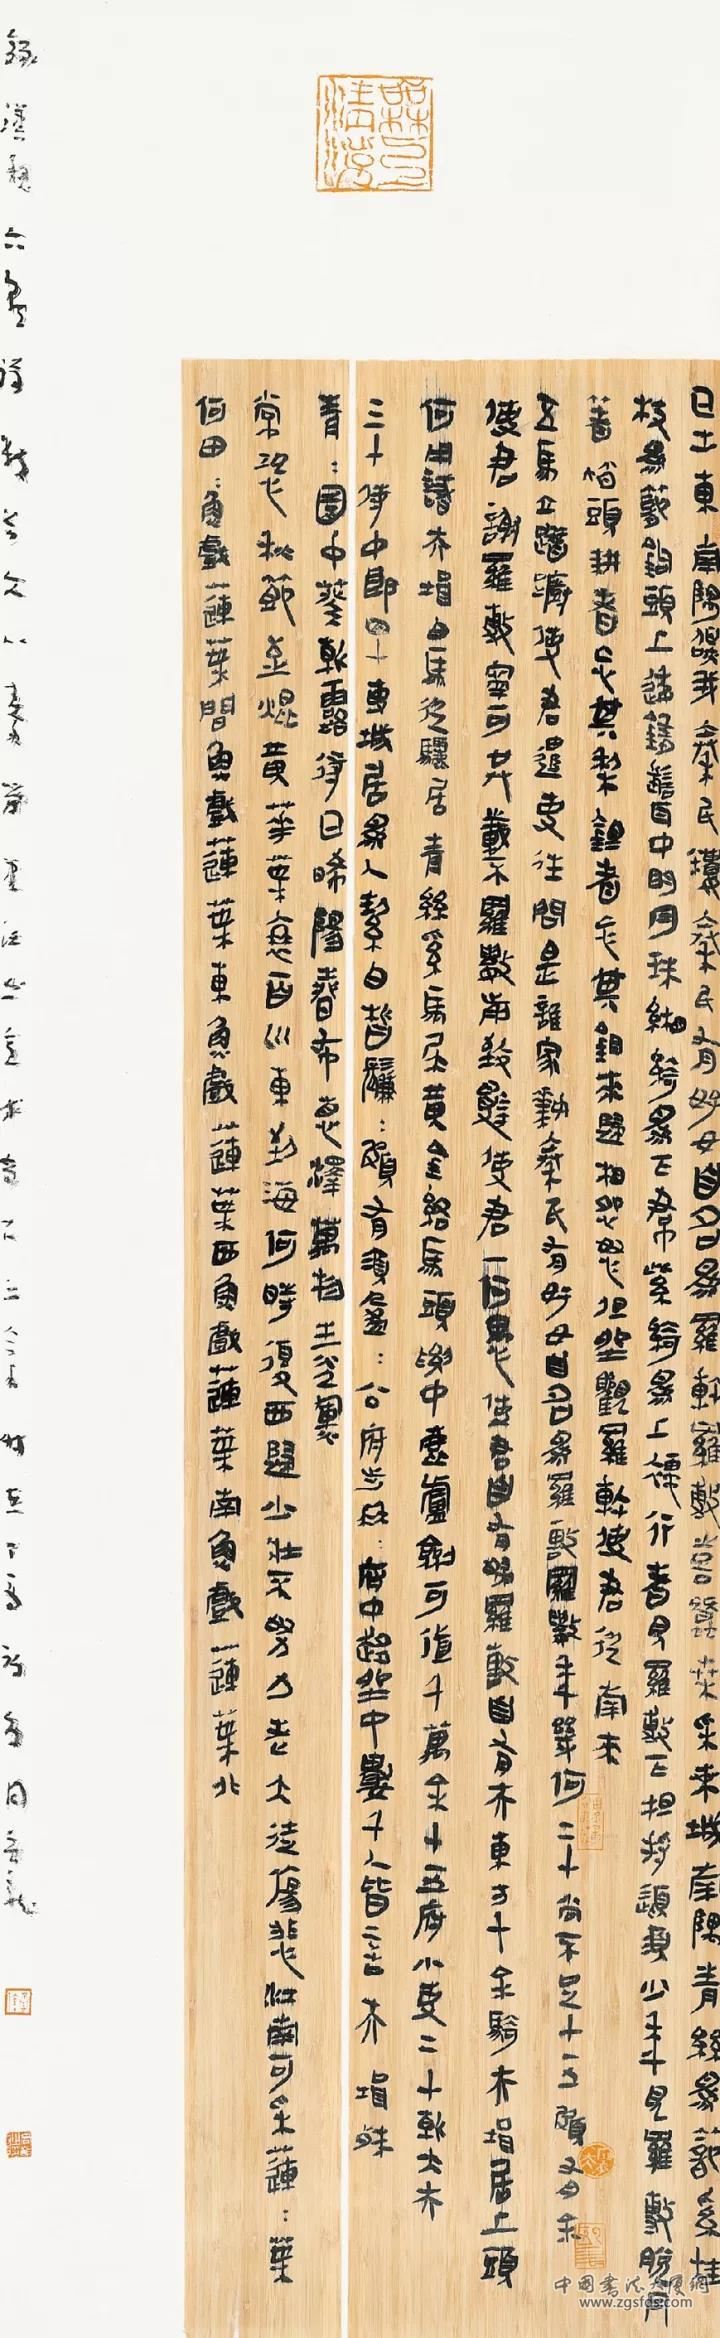 日出東南隅照我秦氏樓秦氏有好女自名爲羅敷羅敷喜蠶桑采桑城南隅青絲爲籠系桂
枝爲籠鉤頭上倭墮髻耳中明月珠緗綺爲下帬紫綺爲上襦行者見羅敷下担捋髭須少年見羅敷脫冃
著帩頭耕者忘其犁鋤者忘其鋤來歸相怨怒但坐觀羅敷使君從南來
五馬立踟躕使君遣吏往問是誰家姝秦氏有好女自名爲羅敷羅敷年幾何二十尚不足十五頗有余
使君謝羅敷寧可共載不羅敷前致辭使君一何愚使君自有婦羅敷自有夫東方千余騎夫壻居上頭
何用識夫壻白馬從驪居青絲系馬尾黃金絡馬頭腰中鹿盧劍可值千萬余十五府小吏二十朝大夫
三十侍中郎四十專城居爲人絜白晳鬑:頗有須盈:公府步冉:府中趨坐中數千人皆言夫壻殊
青:園中葵朝露待日晞陽春布惪澤萬物生光輝
常恐秋節至焜黃華葉衰百川東到海何時復西歸少壯不努力老大徒傷悲江南可采蓮:葉
何田:魚戲蓮葉間魚戲蓮葉東魚戲蓮葉西魚戲蓮葉南魚戲蓮葉北
錄漢魏六
中国书法大厦網
www.zgsfds.com